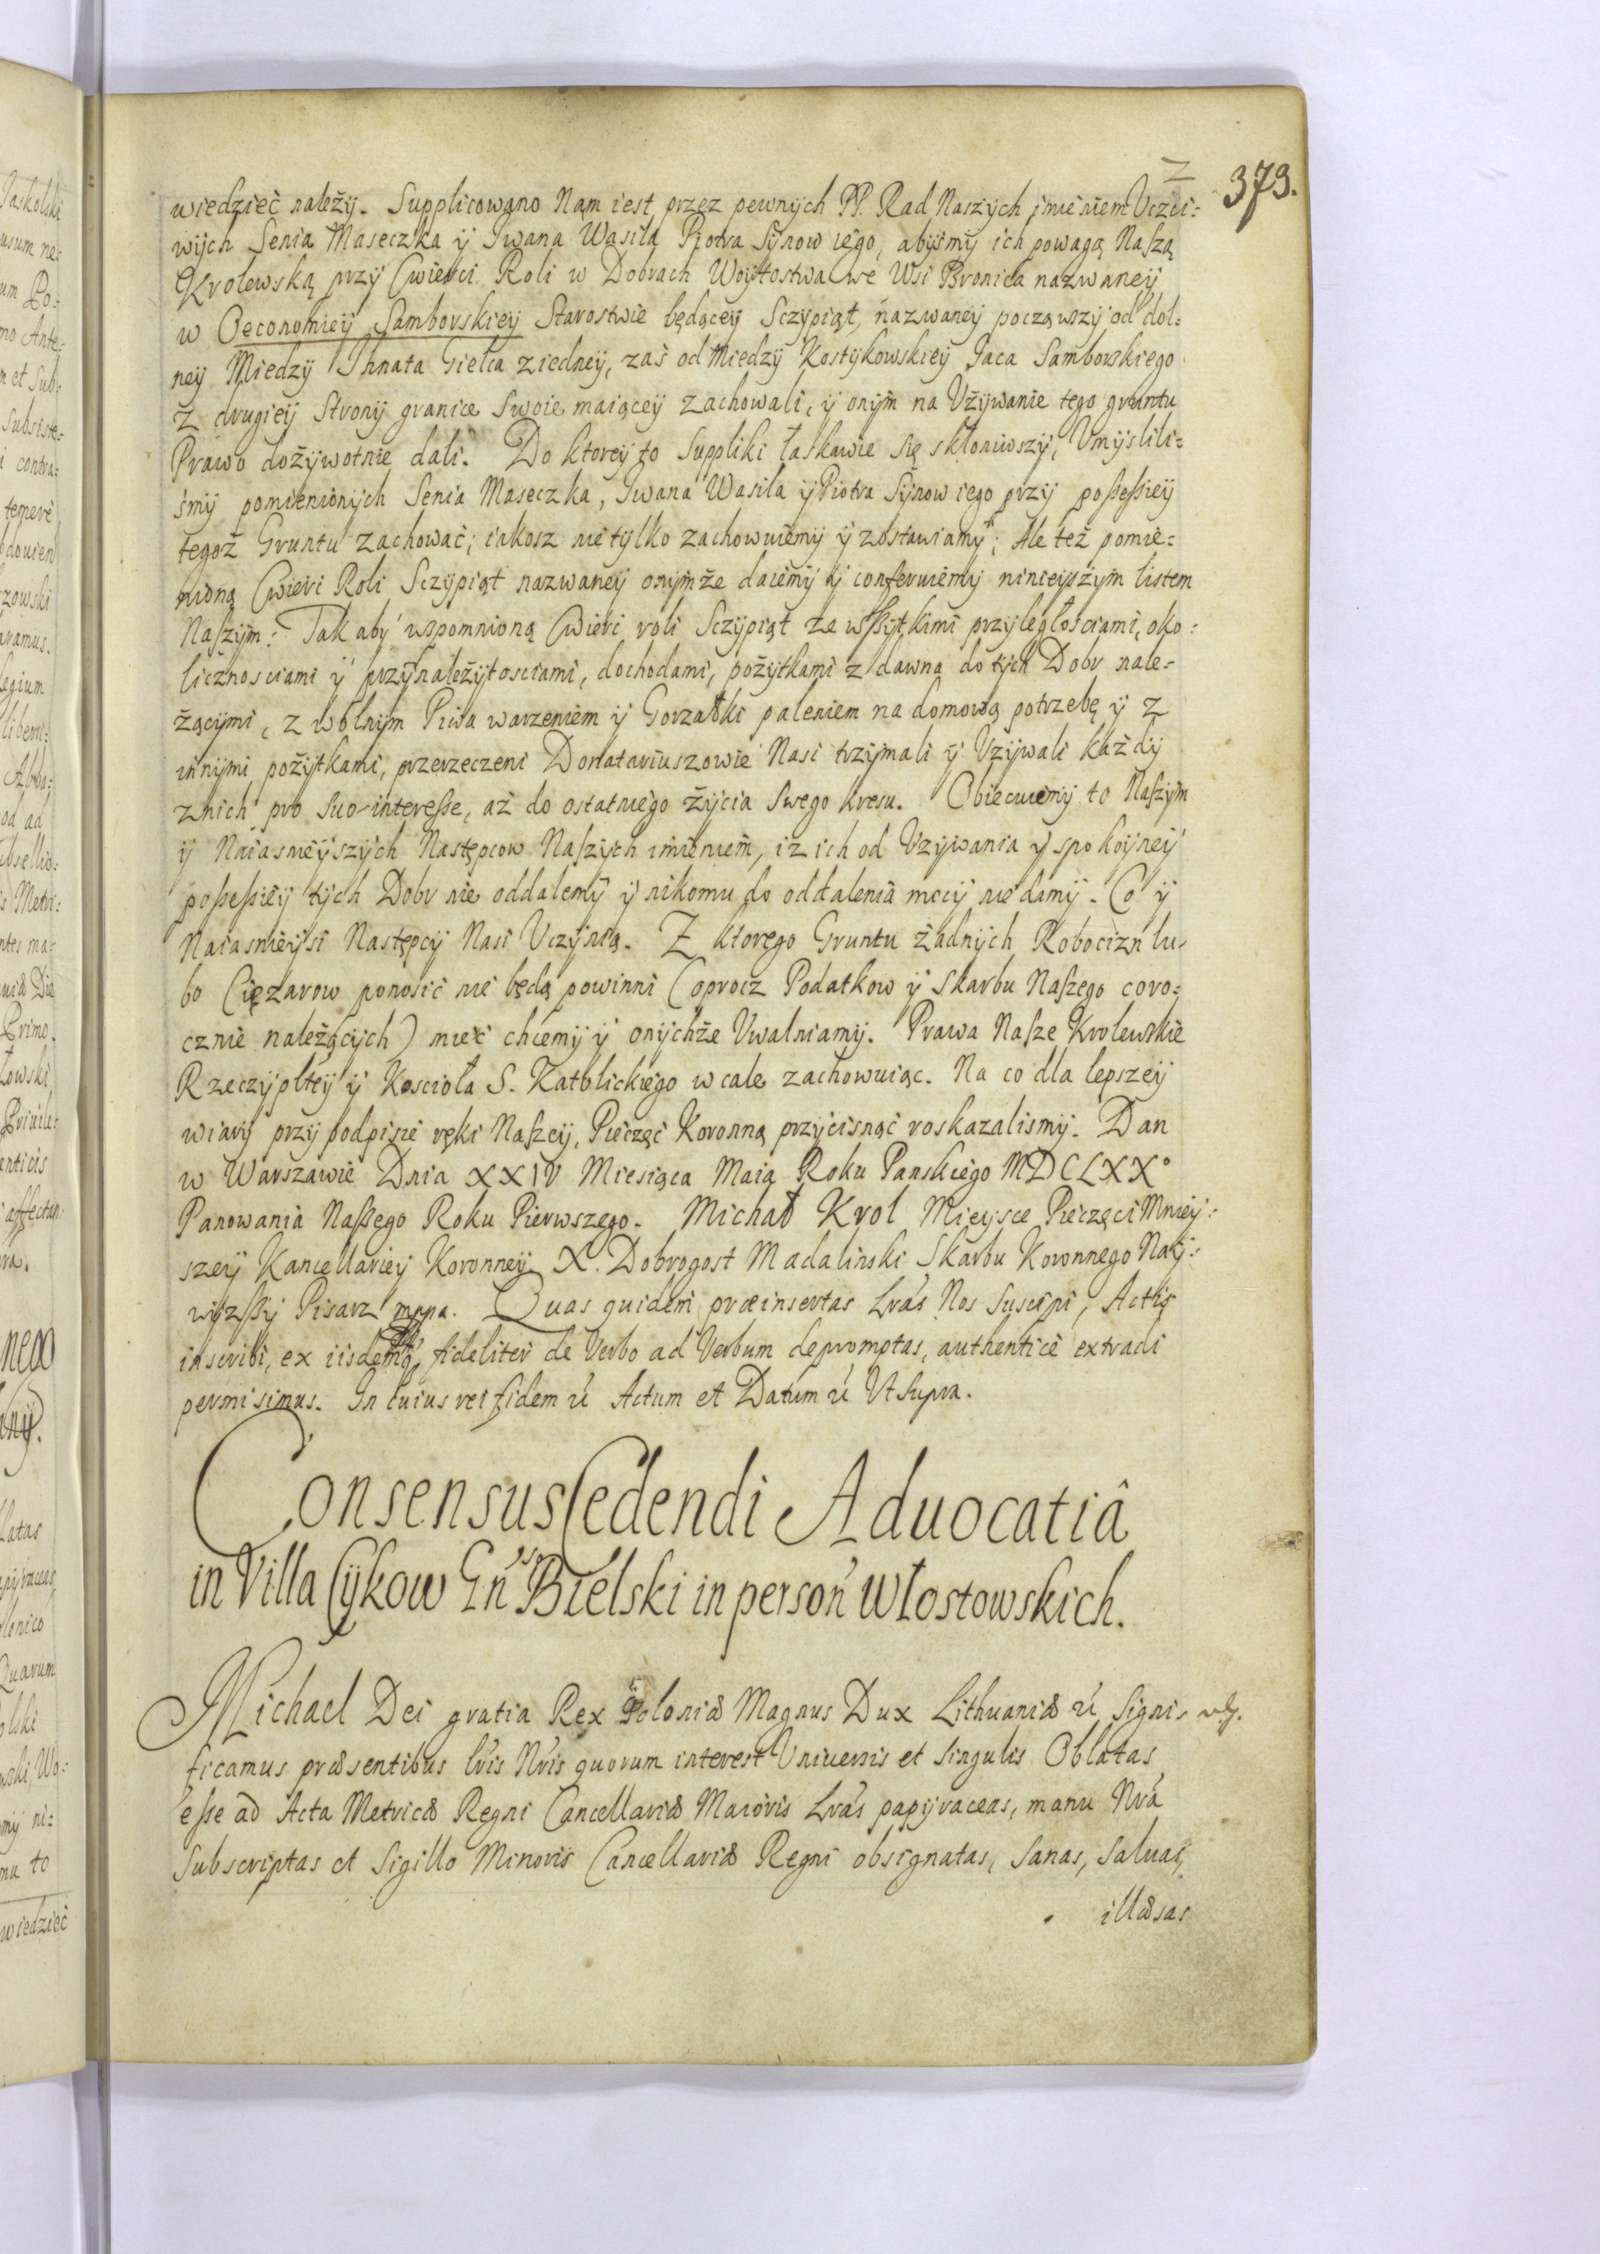 373.
wiedzieć należy. Supplicowano Nam iest przez pewnych PP. Rad Naszych imieniem Uczci:
wych Senia Maseczka y Iwana Wasila Piotra Synow iego, abyśmy ich powagą Naszą
Krolewską przy Cwierci Roli w Dobrach Woytostwa we Wsi Bronica nazwaney
w Oeconomiey Samborskiey Starostwie będącey Sczypiąt nazwaney począwszy od dol:
ney Miedzy Ihnata Gielca ziedney, zaś od Miedzy Kostykowskiey Jaca Samborskiego
z drugiey strony granice swoie maiącey zachowali, y onym na Używanie tego gruntu
Prawo dożywotnie dali. Do ktorey to Suppliki łaskawie się skłoniwszy, Umyslili:
śmy pomienionych Senia Maseczka, Iwana Wasila y Piotra Synow iego przy possessiey
tegoż Gruntu zachować; iakosz nie tylko zachowuiemy y zostawiamy; Ale też pomie:
nioną Cwierć Roli Sczypiąt nazwaney onymże daiemy y conferuiemy ninieyszym listem
Naszym: Tak aby wspomnioną Cwierć roli Sczypiąt ze wszytkimi przyległościami, oko:
licznosciami y przynależytosciami, dochodami, pożytkami z dawna do tych Dobr nale:
żącymi, z wolnym Piwa warzeniem y Gorzałki paleniem na domową potrzebę y z
innymi pożytkami, przerzeczeni Donatariuszowie Nasi trzymali y Używali każdy
znich pro suo interesse, aż do ostatniego życia swego kresu. Obiecuiemy to Naszym
y Naiasnieyszych Następcow Naszych imieniem, iz ich od Uzywania y spokoyney
possessiey tych Dobr nie oddalemy y nikomu do oddalenia mocy nie damy. Co y
Naiasnieysi Następcy Nasi Uczynią. Z ktorego Gruntu żadnych Robocizn lu:
bo Ciężarow ponosić nie będą powinni (oprocz Podatkow y Skarbu Naszego coro:
cznie należących) mieć chcemy y onychże Uwalniamy. Prawa Nasze Krolewskie
Rzeczypltey y Koscioła S. Katolickiego wcale zachowuiąc. Na co dla lepszey
wiary przy podpisie ręki Naszey, Pieczęć Koronną przycisnąć roskazalismy. Dan
w Warszawie Dnia XXIV Miesiąca Maia Roku Panskiego MDCLXX°
Panowania Naszego Roku Pierwszego. Michał Krol Mieysce Pieczęci Mniey:
szey Kancellariey Koronney. X. Dobrogost Madalinski Skarbu Koronnego Nay:
wyzszy Pisarz mppa. Quas quidem præinsertas Lrás Nos Suscipi, Actis
inscribi, ex iisdemq, fideliter de Verbo ad Verbum depromptas, authenticè extradi
permisimus. In cuius rei fidem ú Actum et Datum ú Ut Supra.
Consensus Cedendi Aduocatiâ
in Villa Cykow Gń Bielski in persoń Włostowskich.
Michael Dei gratia Rex Poloniæ Magnus Dux Lithuaniæ ú Signi:
ficamus præsentibus lris Nris quorum interest Uniuersis et singulis Oblatas
esse ad Acta Metricæ Regni Cancellariæ Maioris Lrás papyraceas, manu Nrá
Subscriptas et Sigillo Minoris Cancellariæ Regni obsignatas, Sanas, Saluas,
illæsas